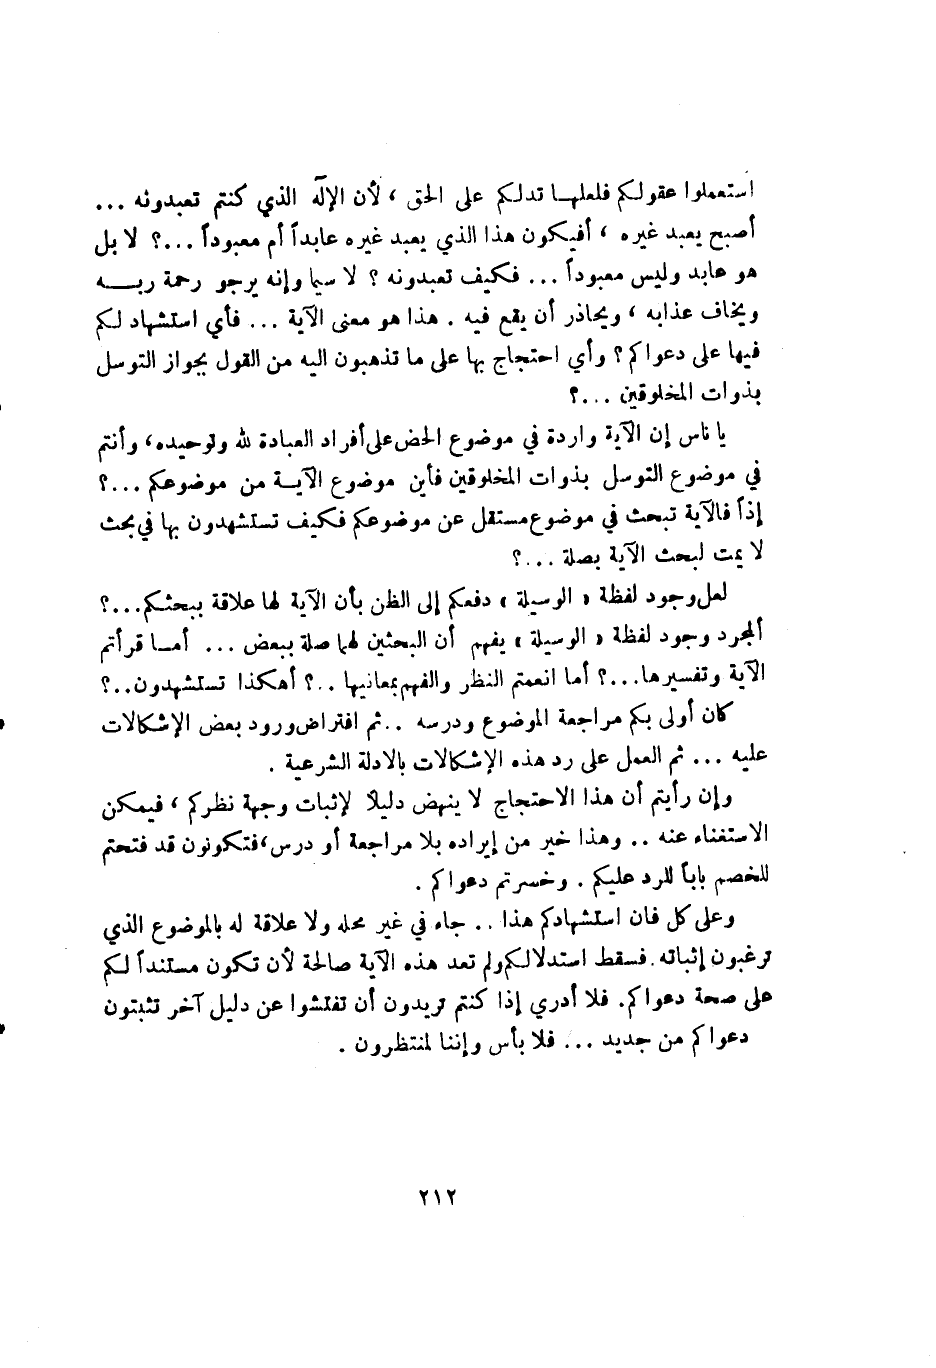 استعملوا عقولكم فلعلهـا تدلكم على الحق ، لأن الإلّه الذي كنتم تعبدونه ...
أصبح يعبد غيره ، أفيكون هذا الذي يعبد غيره عابداً أم معبوداً ...؟ لا بل
هو عابد وليس معبوداً ... فكيف تعبدونه ؟ لا سيما وإنه يرجو رحمة ربـــه
ويخاف عذابه ، ويحاذر أن يقع فيه . هذا هو معنى الآية ... فأي استشهاد لكم
فيها على دعواكم؟ وأي احتجاج بها على ما تذهبون اليه من القول بجواز التوسل
بذوات المخلوقين ...؟
يا ناس إن الآية واردة في موضوع الحض على أفراد العبادة لله وتوحيده، وأنتم
في موضوع التوسل بذوات المخلوقين فأين موضوع الآيـة من موضوعكم ...؟
إذاً فالآية تبحث في موضوع مستقل عن موضوعكم فكيف تستشهدون بها في بحث
لا يمت لبحث الآية بصلة ...؟
لعل وجود لفظة « الوسيلة » دفعكم إلى الظن بأن الآية لها علاقة ببحثكم...؟
ألمجرد وجود لفظة « الوسيلة » يفهم أن البحثين لهما صلة ببعض ... أمـا قرأتم
الآية وتفسيرها...؟ أما انعمتم النظر والفهم بمعانيها ..؟ أهكذا تستشهدون..؟
كان أولى بكم مراجعة الموضوع ودرسه ..ثم افتراض ورود بعض الإشكالات
عليه ... ثم العمل على رد هذه الإشكالات بالادلة الشرعية .
وإن رأيتم أن هذا الاحتجاج لا ينهض دليلاً لإثبات وجهة نظركم ، فيمكن
الاستغناء عنه .. وهذا خير من إيراده بلا مراجعة أو درس، فتكونون قد فتحتم
للخصم باباً للرد عليكم . وخسرتم دعواكم .
وعلى كل فان استشهادكم هذا .. جاء في غير محله ولا علاقة له بالموضوع الذي
ترغبون إثباته. فسقط استدلالكم ولم تعد هذه الآية صالحة لأن تكون مستنداً لكم
على صحة دعواكم. فلا أدري إذا كنتم تريدون أن تفتشوا عن دليل آخر تثبتون
دعواكم من جديد ... فلا بأس وإننا لمنتظرون .
٢١٢